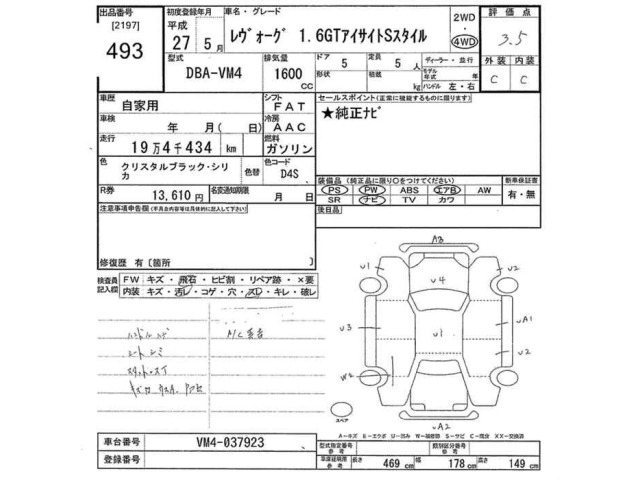 出品番号 初度登録年月 車名・グレード 2WD 評価点
[2197] 平成 4WD 3.5
493 27年 5月 レヴォーグ 1.6GTアイサイトSスタイル
型式 排気量 ドア 5 定員 5人 ディーラー・並行 外装 内装
DBA-VM4 1600cc 形状 積載 kg モデル年式 年 ハンドル 左・右 C C
車歴 自家用 シフト FAT セールスポイント(正常に機能するものに限ります)
車検 年 月(日) 冷房 AAC ★純正ナビ
走行 19万4千434 km 燃料 ガソリン
色 クリスタルブラック・シリカ 色替 色コード D4S
装備品 (純正品に限り○をつけてください) 新車保証書
R券 13,610円 名変通知期限 月 日 PS PW ABS エアB AW 有・無
SR ナビ TV カワ
注意事項申告欄 後日品
修復歴 有[箇所 ]
検査員記入欄 FW キズ・飛石・ヒビ割・リペア跡・×要
内装 キズ・汚レ・コゲ・穴・スレ・キレ・破レ
A3
U1 U2
U4
U3 U1 UA1
U2
W2
UA2
スペア
A-キズ E-エクボ U-凹み W-補修跡 S-サビ C-腐食 XX-交換済
車台番号 VM4-037923 型式指定番号 参考 類別区分番号 参考
登録番号 車庫証明用 参考 長さ 469 cm 幅 178 cm 高さ 149 cm